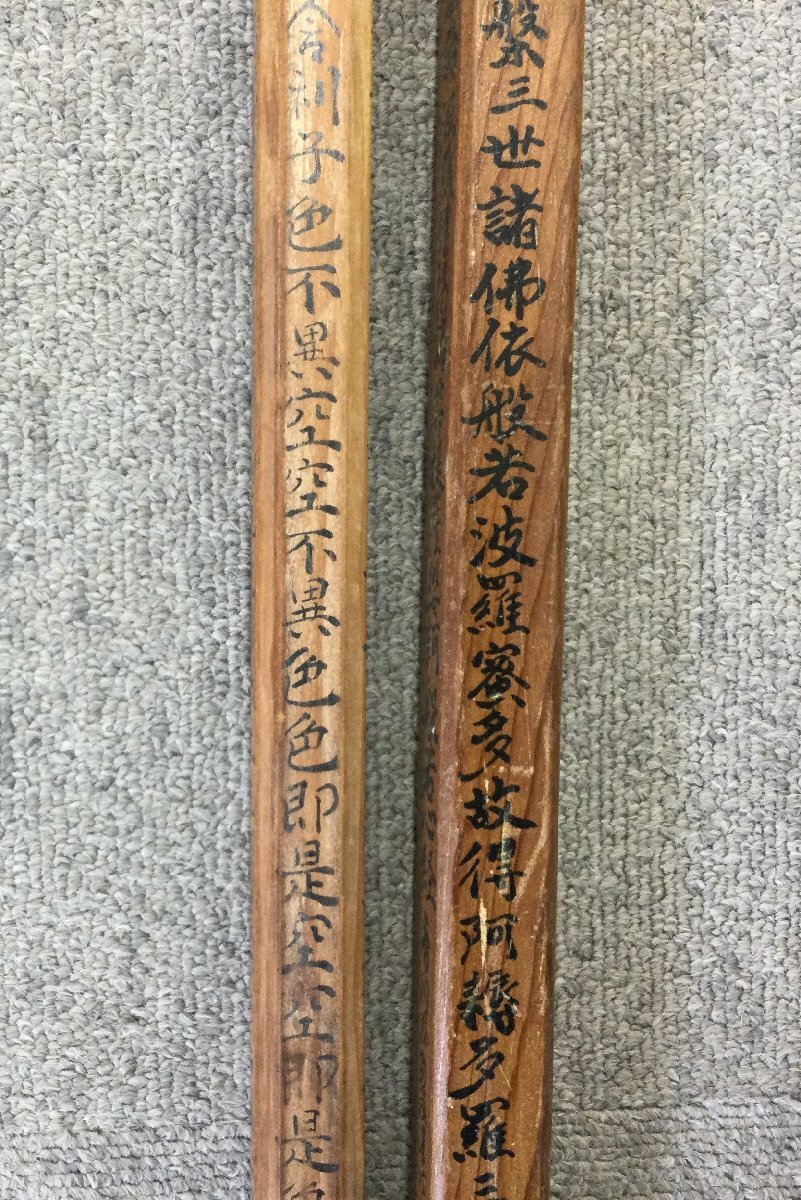 槃三世諸佛依般若波羅蜜多故得阿耨多羅三
舎利子色不異空空不異色色即是空空即是色